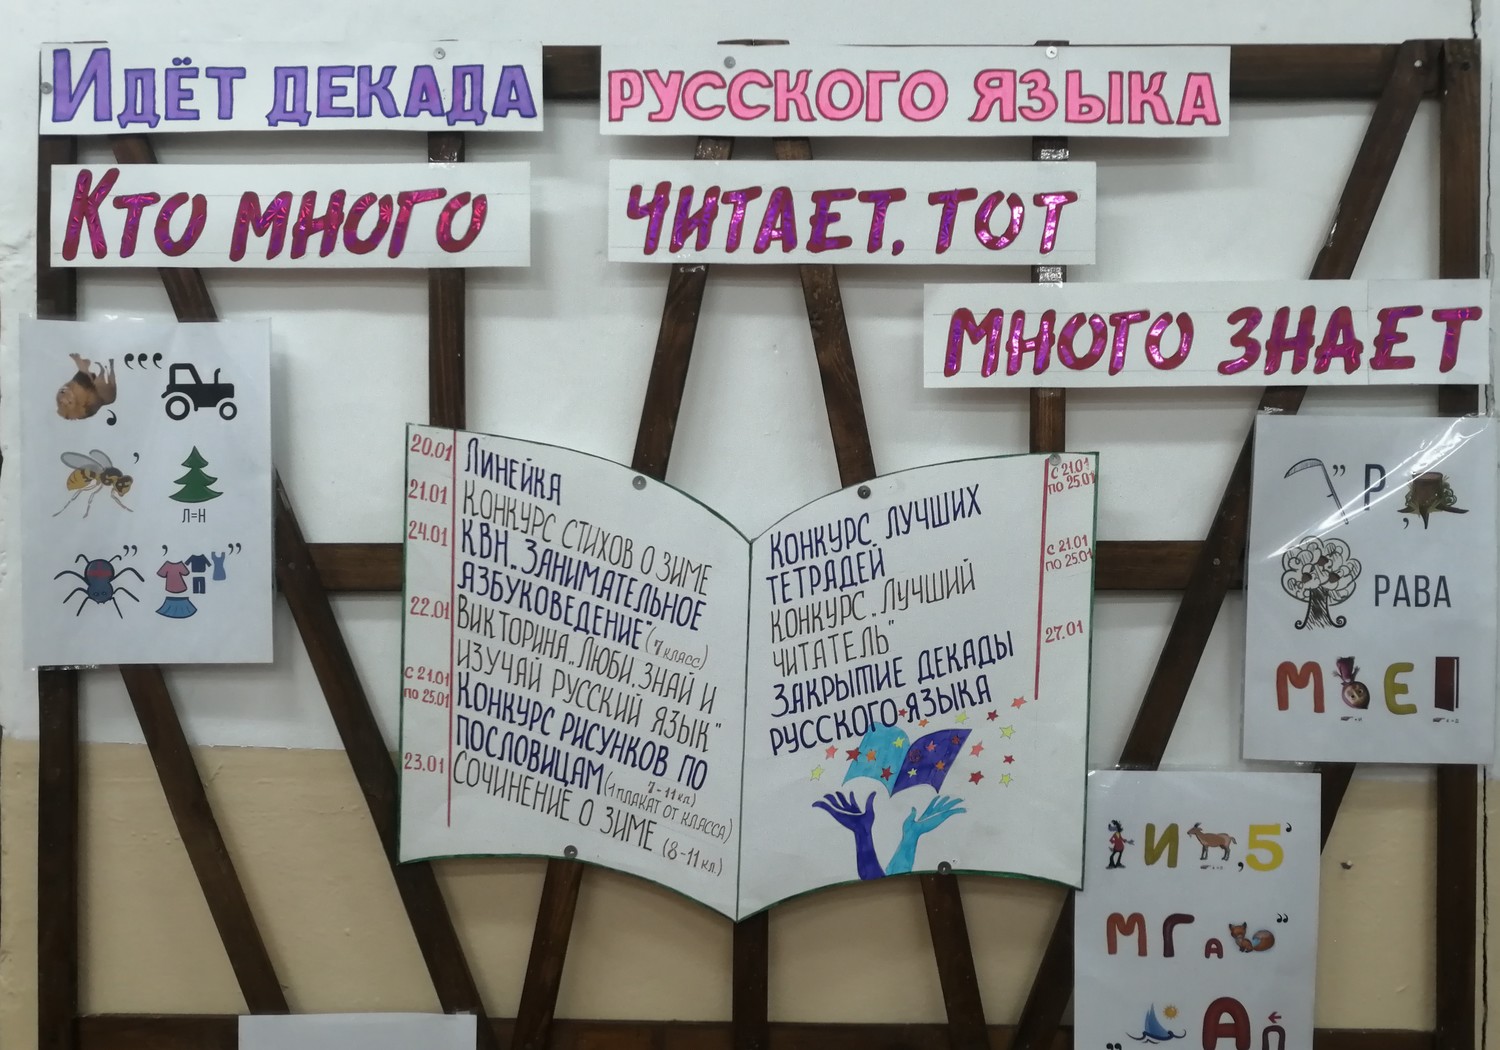 Идёт декада русского языка
Кто много читает, тот
много знает
20.01 Линейка
21.01 Конкурс стихов о зиме
24.01 КВН. Занимательное
язбуковедение" (7 класс)
22.01 Викторина „Люби, знай и
изучай русский язык"
с 21.01 по 25.01 Конкурс рисунков по
пословицам (1 плакат от класса)
7-11 кл)
23.01 Сочинение о зиме (8-11 кл.)
Конкурс лучших с 21.01
тетрадей по 25.01
Конкурс „Лучший с 21.01
читатель" по 25.01
Закрытие декады 27.01
русского языка
,,,
,
,
Л=Н
,, , ,,
,, Р ,
РАВА
М Е
И , 5 ,
М Г А ,,
,, А П